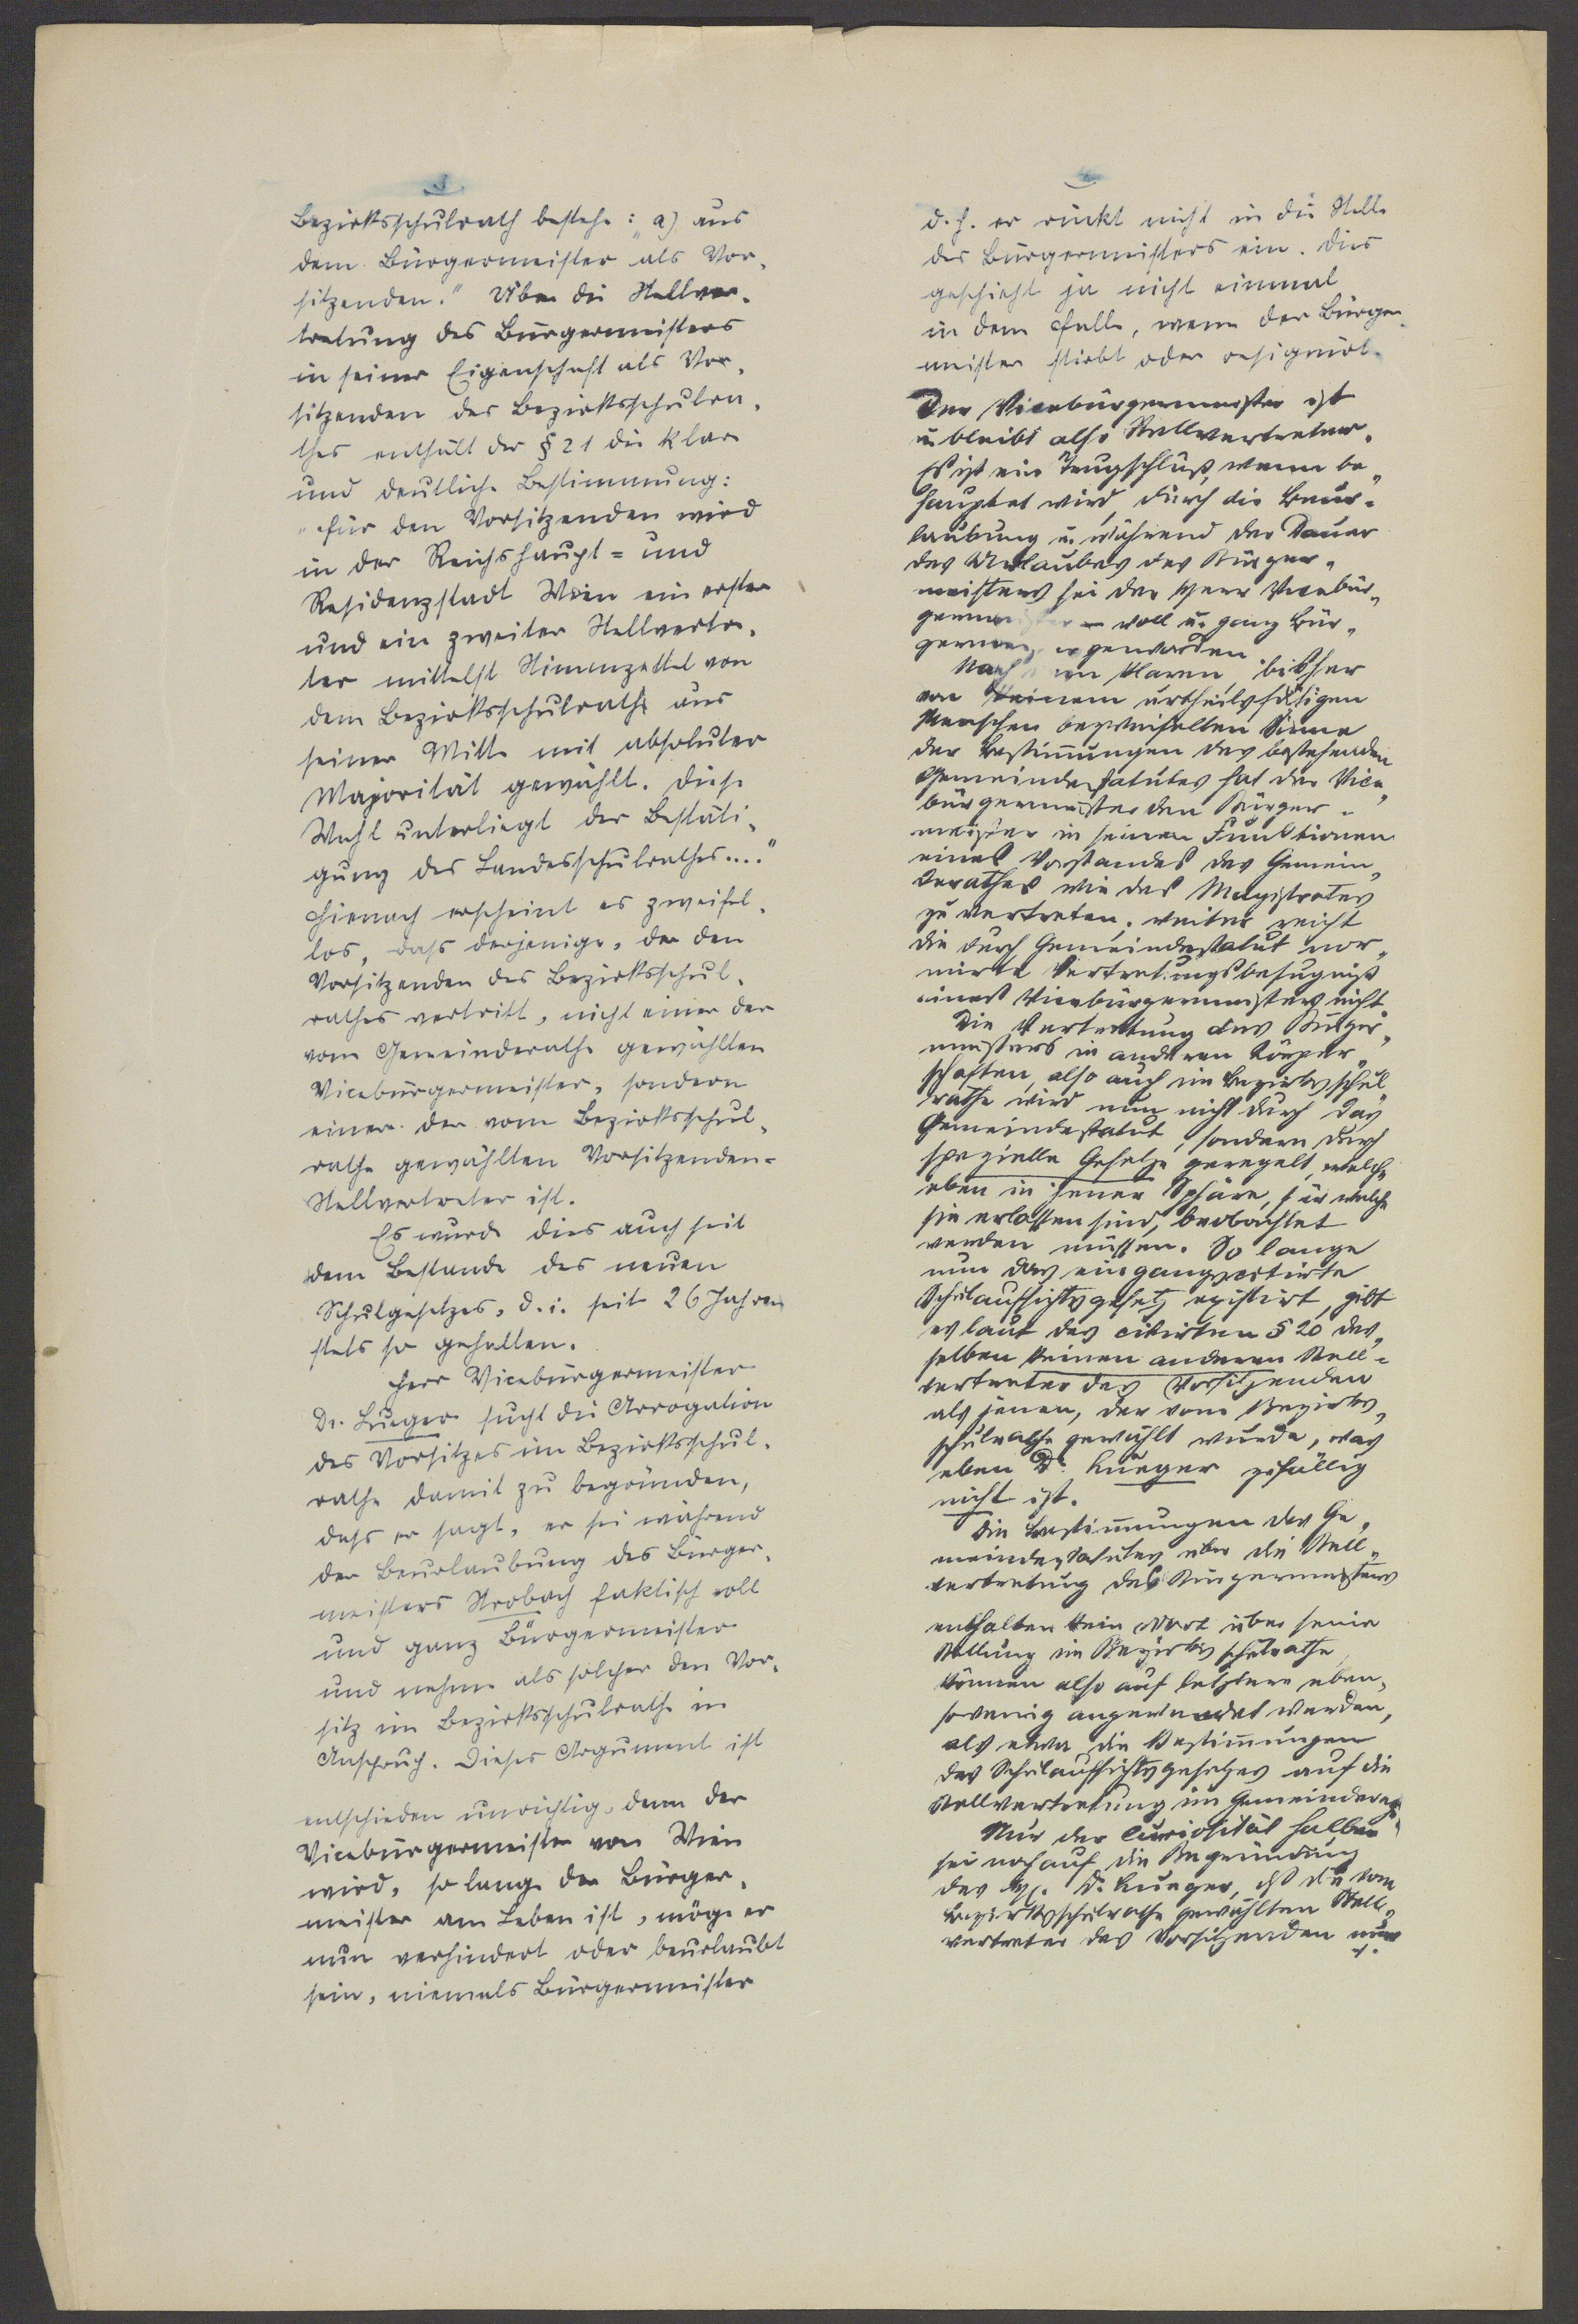 Bezirksschulrath bestehe: „a) aus
dem Bürgermeister als Vor-
sitzenden." Über die Stellver-
tretung des Bürgermeisters
in seiner Eigenschaft als Vor-
sitzenden des Bezirksschulra-
thes enthält der § 21 die klare
und deutliche Bestimmung:
„Für den Vorsitzenden wird
in der Reichshaupt= und
Residenzstadt Wien ein erster
und ein zweiter Stellvertre-
ter mittelst Stimmzettel von
dem Bezirksschulrathe aus
seiner Mitte mit absoluter
Majorität gewählt. Diese
Wahl unterliegt der Bestäti-
gung des Landesschulrathes...."
Hienach erscheint es zweifel-
los, dass derjenige, der den
Vorsitzenden des Bezirksschul-
rathes vertritt, nicht einer der
vom Gemeinderathe gewählten
Vicebürgermeister, sondern
einer der vom Bezirksschul-
rathe gewählten Vorsitzenden-
Stellvertreter ist.
Es wurde dies auch seit
dem Bestande des neuen
Schulgesetzes, d. i. seit 26 Jahren
stets so gehalten.
Herr Vicebürgermeister
Dr. Lueger sucht die Arrogation
des Vorsitzes im Bezirksschul-
rathe damit zu begründen,
dass er sagt, er sei während
der Beurlaubung des Bürger-
meisters Strobach faktisch voll
und ganz Bürgermeister
und nehme als solcher den Vor-
sitz im Bezirksschulrathe in
Anspruch. Dieses Argument ist
entschieden unrichtig, denn der
Vicebürgermeister von Wien
wird, so lange der Bürger-
meister am Leben ist, möge er
nun verhindert oder beurlaubt
sein, niemals Bürgermeister
d. h. er rückt nicht in die Stelle
des Bürgermeisters ein. Dies
geschieht ja nicht einmal
in dem Falle, wenn der Bürger-
meister stirbt oder resignirt.
Der Vicebürgermeister ist
u. bleibt also Stellvertreter.
Es ist ein Trugschluß, wenn be-
hauptet wird, durch die Beur-
laubung u. während der Dauer
des Urlaubes des Bürger-
meisters sei der Herr Vicebür-
germeister – voll u. ganz Bür-
germeister geworden.
Nach dem klaren, bisher
von keinem urtheilsfähigen
Menschen bezweifelten Sinne
der Bestimungen des bestehenden
Gemeindestatutes hat der Vice-
bürgermeister den Bürger-
meister in seinen Funktionen
eines Vorstandes des Gemein-
derathes wie des Magistrates
zu vertreten; weiter reicht
die durch Gemeindestatut nor-
mirte Vertretungsbefugniß
eines Vicebürgermeisters nicht.
Die Vertretung des Bürger-
meisters in anderen Körper-
schaften, also auch im Bezirksschul
rathe wird nun nicht durch das
Gemeindestatut, sondern durch
spezielle Gesetze geregelt, welche
eben in jener Sphäre, für welche
sie erlassen sind, beobachtet
werden müssen. So lange
nun das eingangscitirte
Schulaufsichtsgesetz existirt, gibt
es laut des citirten § 20 des-
selben keinen anderen Stell-
vertreter des Vorsitzenden
als jenen, der vom Bezirks-
schulrathe gewählt wurde, was
eben Dr. Lueger zufällig
nicht ist.
Die Bestimungen des Ge-
meindestatutes über die Stell-
vertretung des Bürgermeisters
enthalten kein Wort über seine
Stellung im Bezirksschulrathe,
können also auf letztere eben-
sowenig angewendet werden,
als etwa die Bestimungen
des Schulaufsichtsgesetzes auf die
Stellvertretung im Gemeindera-
Nur der Curiosität halber
sei noch auf die Begründung
des Dr. Lueger, dß die vom
Bezirksschulrathe gewählten Stell-
vertreter des Vorsitzenden nur